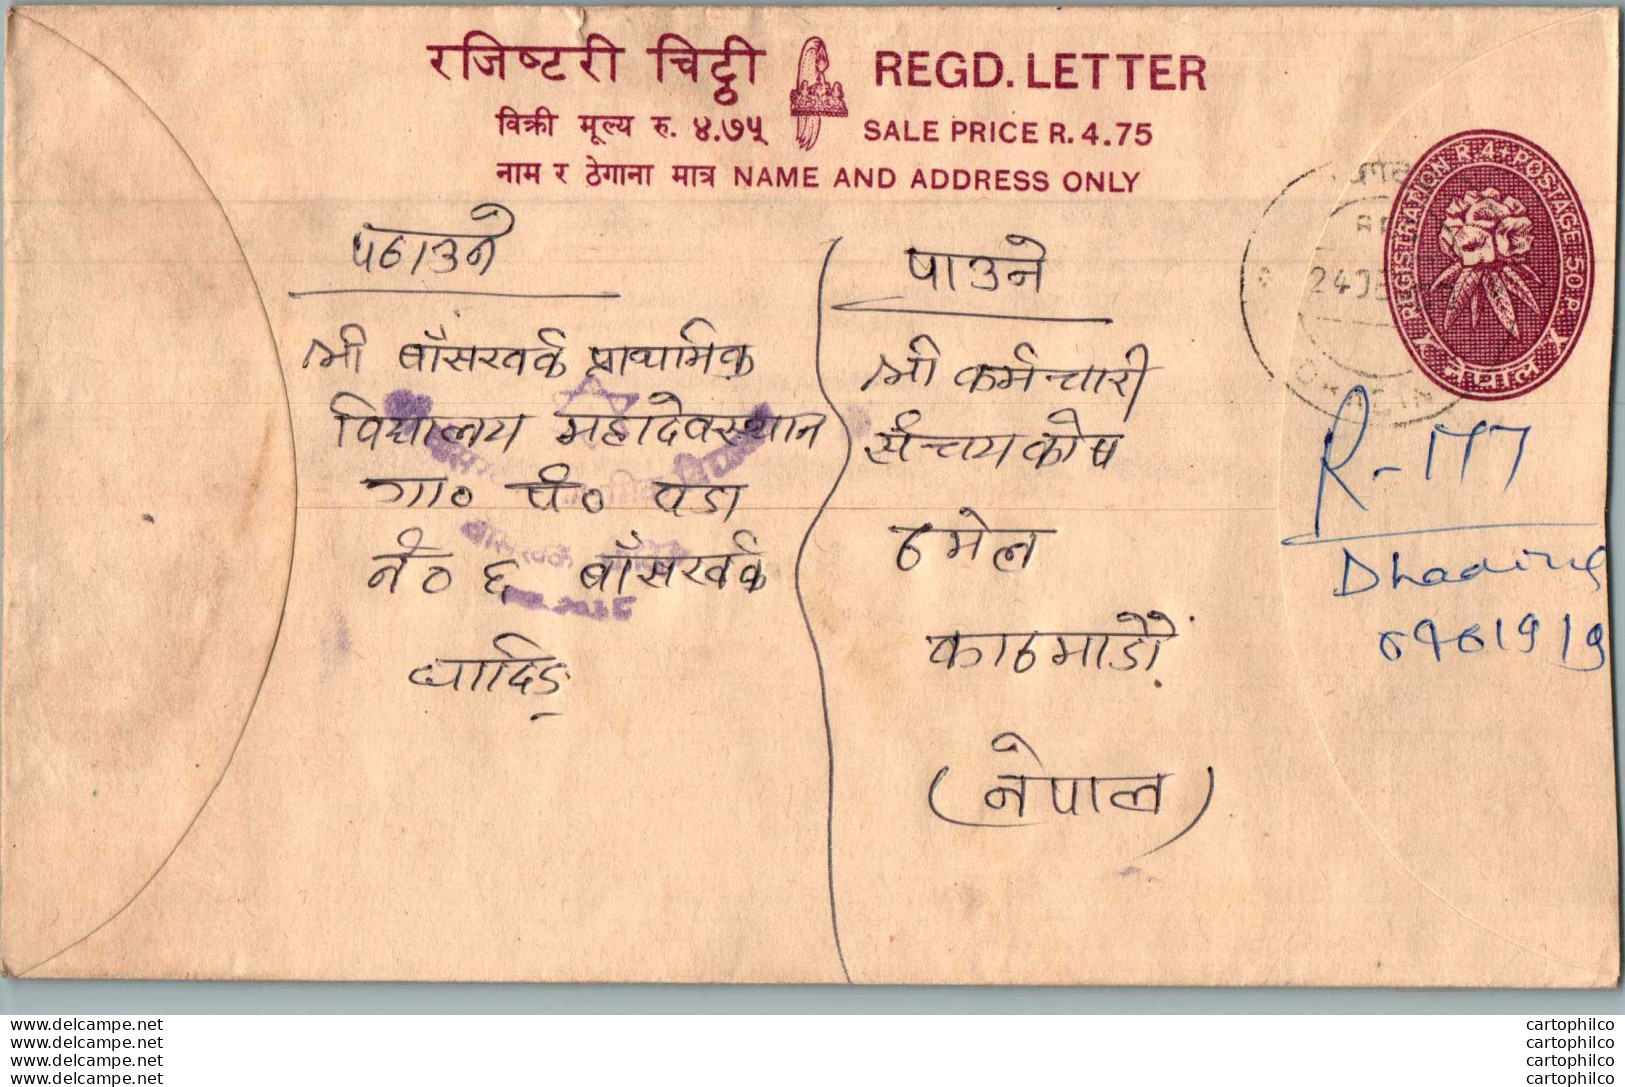 रजिष्टरी चिट्ठी REGD. LETTER
विक्री मूल्य रु. ४.७५ SALE PRICE R. 4.75
नाम र ठेगाना मात्र NAME AND ADDRESS ONLY
REGISTRATION R.4. POSTAGE 50 P.
नेपाल
24 DE
पठाउने
श्री बाँसखर्क प्राथमिक
विद्यालय महादेवस्थान
गा० पं० वडा
नं० ६ बाँसखर्क
धादिङ्ग
पाउने
श्री कर्मचारी
संचयकोष
ठमेल
काठमाडौं
(नेपाल)
R-177
Dhading
www.delcampe.net
www.delcampe.net
www.delcampe.net
www.delcampe.net
cartophilco
cartophilco
cartophilco
cartophilco